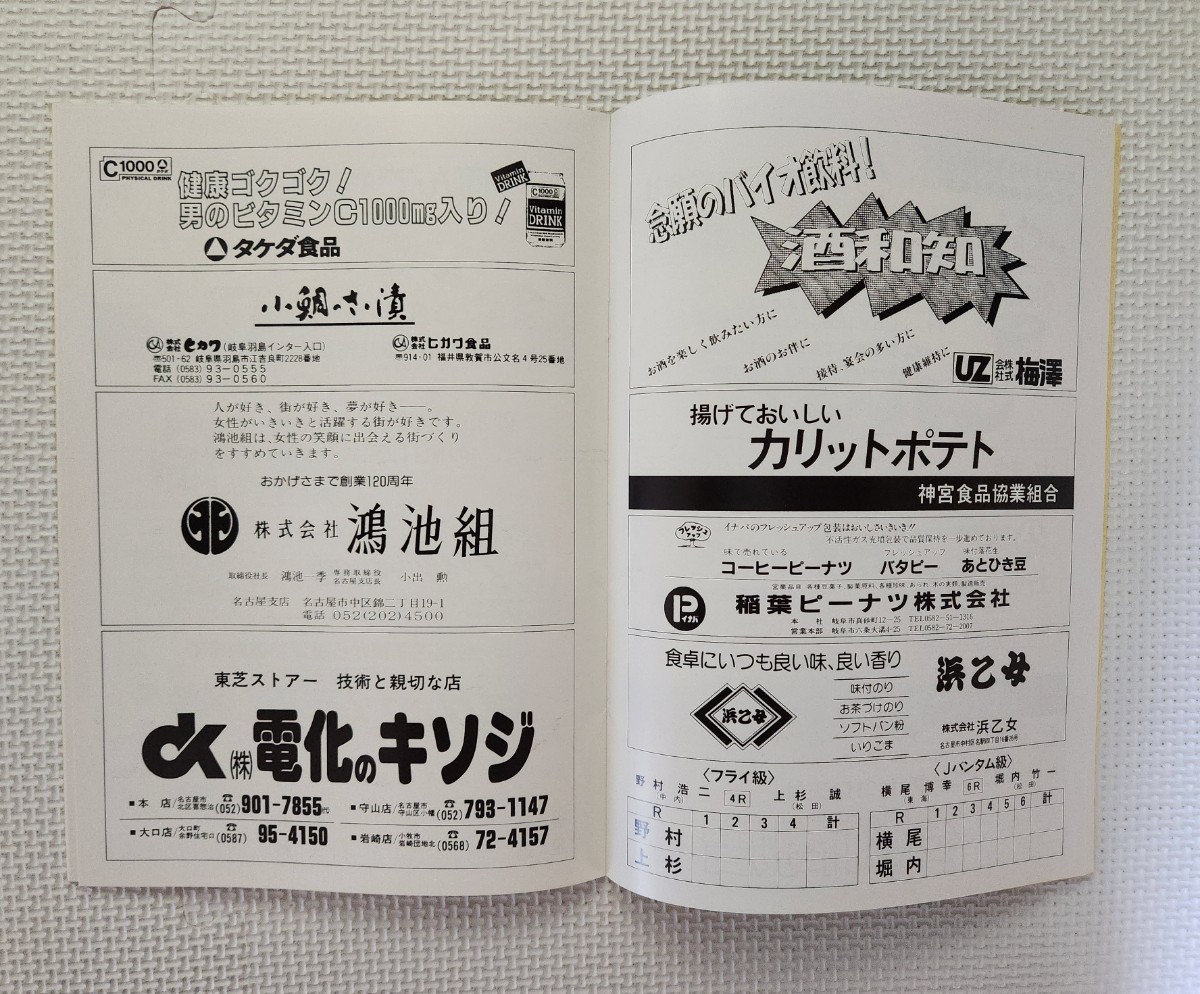 C1000
PHYSICAL DRINK
健康ゴクゴク!
男のビタミンC1000mg入り!
タケダ食品
Vitamin
DRINK
C1000
Vitamin
DRINK
小鯛のささ漬
株式会社 ヒカワ (岐阜羽島インター入口)
〒501-62 岐阜県羽島市江吉良町2228番地
電話 (0583) 93-0555
FAX (0583) 93-0560
株式会社 ヒカワ食品
〒914-01 福井県敦賀市公文名4号25番地
人が好き、街が好き、夢が好き――。
女性がいきいきと活躍する街が好きです。
鴻池組は、女性の笑顔に出会える街づくり
をすすめていきます。
おかげさまで創業120周年
株式会社 鴻池組
取締役社長 鴻池一季 専務取締役 名古屋支店長 小出 勲
名古屋支店 名古屋市中区錦二丁目19-1
電話 052(202)4500
東芝ストアー 技術と親切な店
dk ㈱電化のキソジ
■本 店/名古屋市北区喜惣治 ☎(052)901-7855㈹
■守山店/名古屋市守山区小幡 ☎(052)793-1147
■大口店/大口町余野住宅口 ☎(0587)95-4150
■岩崎店/小牧市岩崎団地北 ☎(0568)72-4157
念願のバイオ飲料!
酒和知
お酒を楽しく飲みたい方に
お酒のお伴に
接待、宴会の多い方に
健康維持に
UZ 株式会社 梅澤
揚げておいしい
カリットポテト
神宮食品協業組合
フレッシュアップ
イナバのフレッシュアップ包装はおいしさいきいき!!
不活性ガス充填包装で品質保持を一歩進めております。
味で売れている
コーヒーピーナツ
フレッシュアップ
バタピー
味付落花生
あとひき豆
営業品目 各種豆菓子、製菓原料、各種珍味、あられ、木の実類、製造販売
イナバ
稲葉ピーナツ株式会社
本 社 岐阜市真砂町12-25 TEL0582-51-1316
営業本部 岐阜市六条大溝4-25 TEL0582-72-2007
食卓にいつも良い味、良い香り
浜乙女
味付のり
お茶づけのり
ソフトパン粉
いりごま
浜乙女
株式会社 浜乙女
名古屋市中村区名駅四丁目16番26号
〈フライ級〉
野村浩二 (中内) 4R 上杉 誠 (松田)
R 1 2 3 4 計
野村
上杉
〈Jバンタム級〉
横尾博幸 (東海) 6R 堀内竹一 (松田)
R 1 2 3 4 5 6 計
横尾
堀内